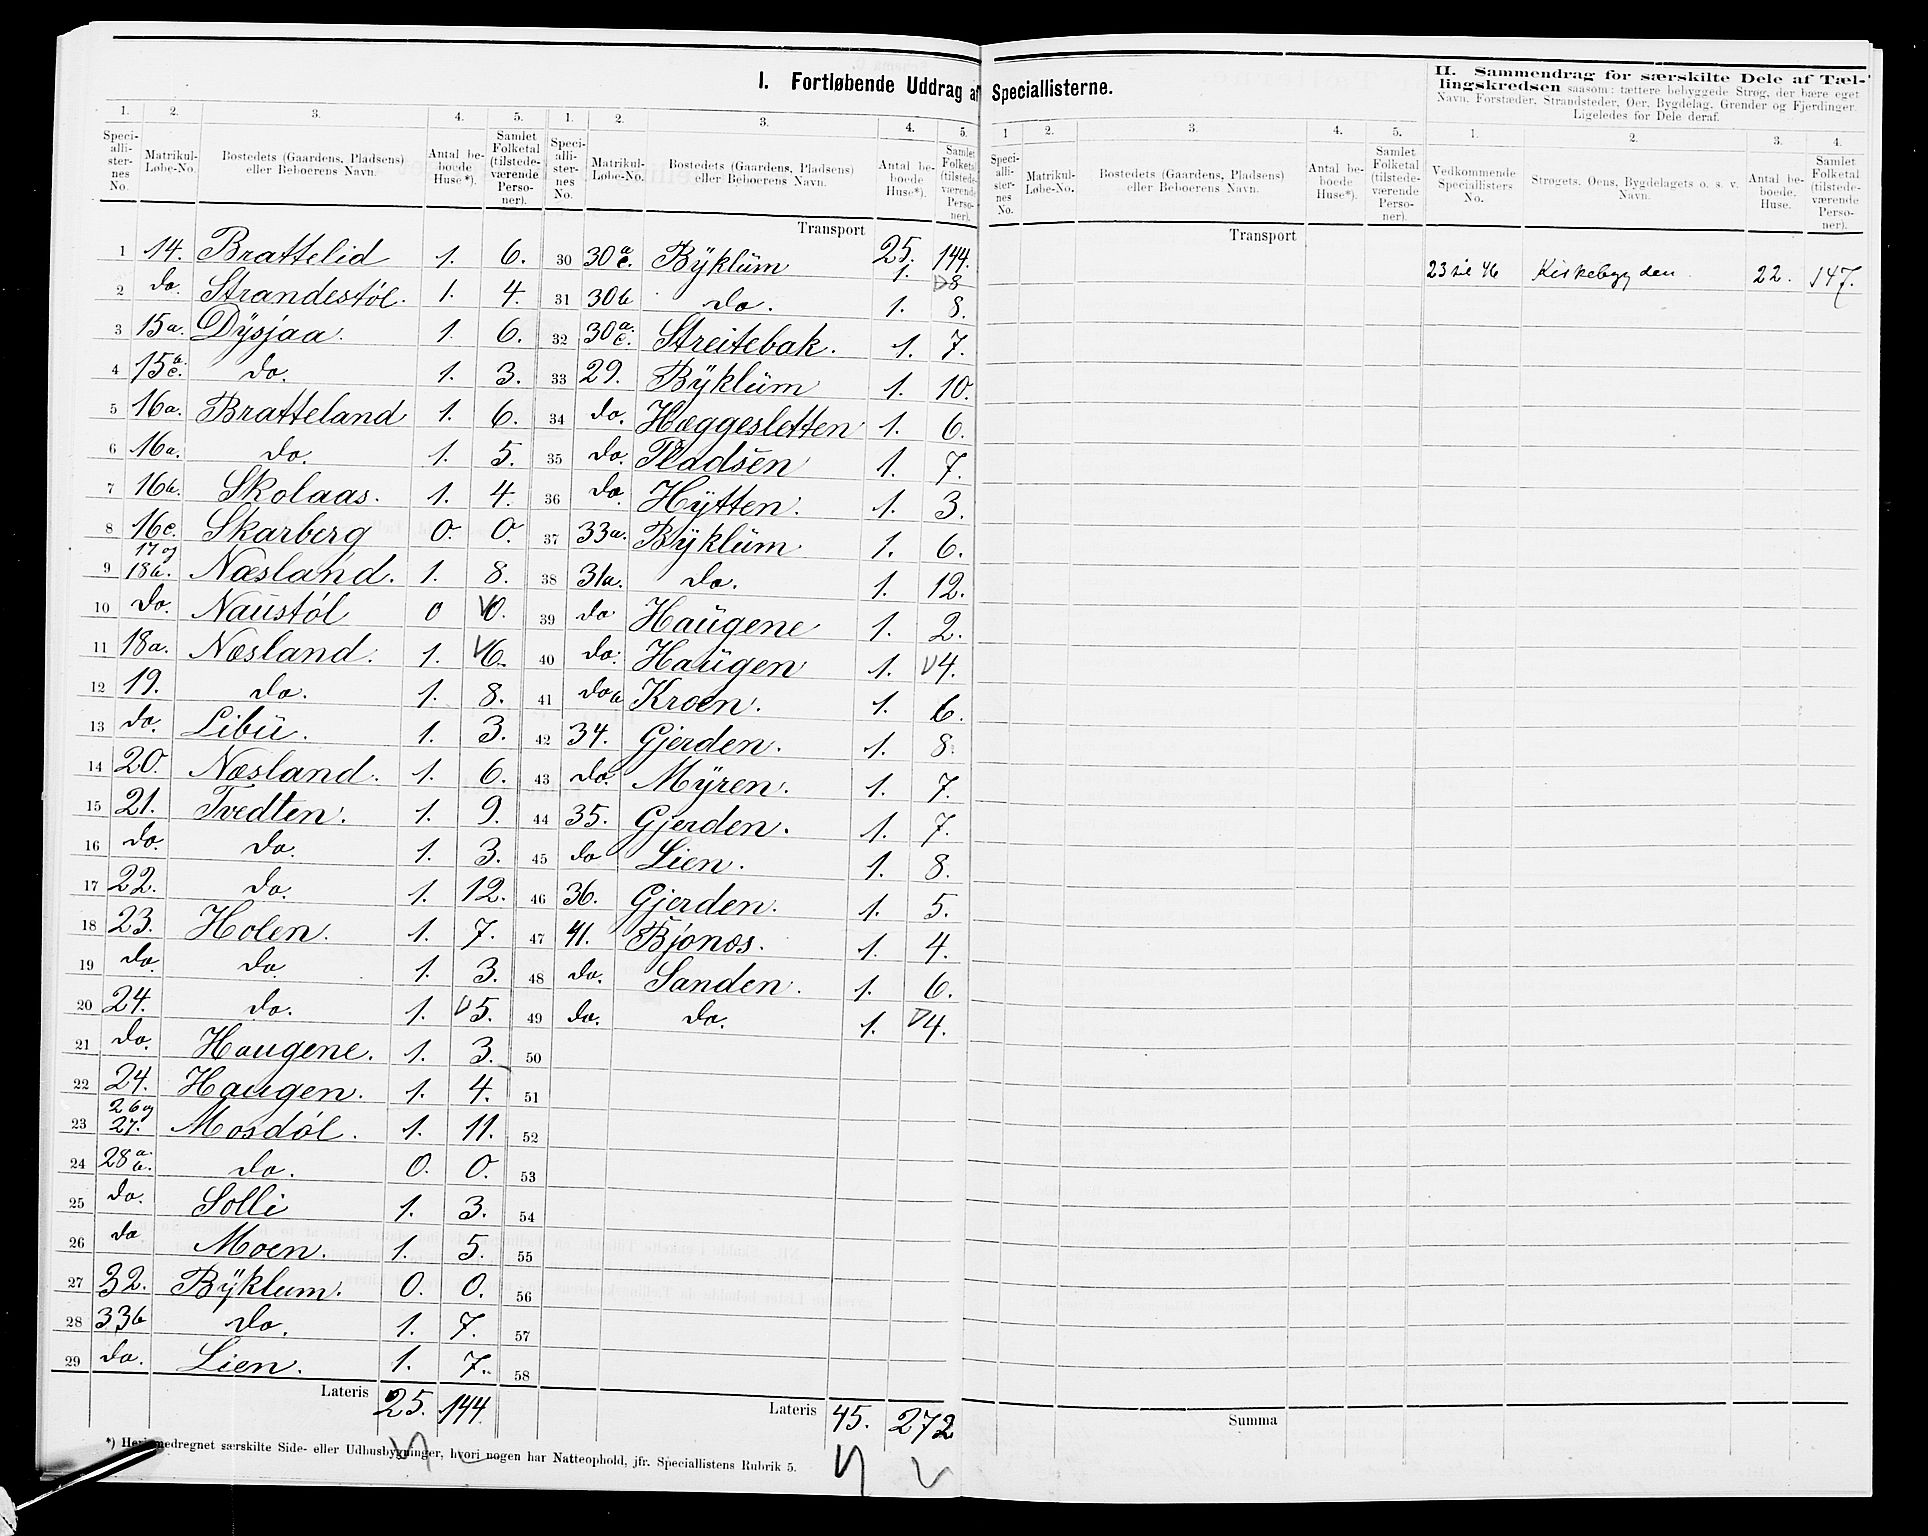 I. Fortløbende Uddrag af Speciallisterne.
II. Sammendrag for særskilte Dele af Tæl-
lingskredsen saasom: tættere bebyggede Strøg, der bære eget
Navn, Forstæder, Strandsteder, Øer, Bygdelag, Grender og Fjerdinger.
Ligeledes for Dele deraf.
1. 2. 3. 4. 5. 1. 2. 3. 4. 5. 1 2. 3. 4. 5. 1. 2. 3. 4.
Speci-alli-ster-nes No. Matrikul-Løbe-No. Bostedets (Gaardens, Pladsen) eller Beboerens Navn. Antal be-boede Huse*). Samlet Folketal (tilstede-værende Perso-ner).
Speci-alli-ster-nes No. Matrikul-Løbe-No. Bostedets (Gaardens, Pladsen) eller Beboerens Navn. Antal be-boede Huse*). Samlet Folketal (tilstede-værende Perso-ner).
Speci-alli-ster-nes No. Matrikul-Løbe-No. Bostedets (Gaardens, Pladsen) eller Beboerens Navn. Antal be-boede Huse*). Samlet Folketal (tilstede-værende Perso-ner).
Vedkommende Speciallisters No. Strøgets, Øens, Bygdelagets o. s. v. Navn. Antal be-boede. Huse. Samlet Folketal (tilstede-værende Perso-ner).
1 14. Brattelid 1. 6.
2 do. Strandestöl. 1. 4.
3 15a. Dÿsjaa. 1. 6.
4 15b.c. do. 1. 3.
5 16a. Bratteland 1. 6.
6 16a. do. 1. 5.
7 16b. Skolaas. 1. 4.
8 16c. Skarberg 0. 0.
9 17 og 18b. Næsland. 1. 8.
10 do. Naustöl 0 0.
11 18a. Næsland. 1. 6.
12 19. do. 1. 8.
13 do. Libü. 1. 3.
14 20. Næsland. 1. 6.
15 21. Tvedten. 1. 9.
16 do. do. 1. 3.
17 22. do. 1. 12.
18 23. Holen. 1. 7.
19 do. do 1. 3.
20 24. do. 1. 5.
21 do. Haugene. 1. 3.
22 24. Haugen. 1. 4.
23 26 og 27. Mosdöl. 1. 11.
24 28 a. b. do. 0. 0.
25 do. Solli 1. 3.
26 do Moen. 1. 5.
27 32. Bÿklum. 0. 0.
28 33b do. 1. 7.
29 do. Lien. 1. 7.
Lateris 25. 144.
Transport 25. 144.
30 30 a c. Bÿklüm 1. 8
31 30b do. 1. 8.
32 30 a. c. Streitebak. 1. 7.
33 29. Bÿklüm 1. 10.
34 do. Hæggesletten 1. 6.
35 do. Pladsen 1. 7.
36 do. Hÿtten. 1. 3.
37 33a. Bÿklüm 1. 6.
38 31a. do. 1. 12.
39 do Haügene 1. 2.
40 do. Haügen 1. 4.
41 do b Kroen. 1. 6.
42 34. Gjerden. 1. 8.
43 do. Mÿren. 1. 7.
44 35. Gjerden. 1. 7.
45 do Lien. 1. 8.
46 36. Gjerden. 1. 5.
47 41. Bjønes. 1. 4.
48 do. Sanden. 1. 6.
49 do. do. 1. 4.
50
51
52
53
54
55
56
57
58
Lateris 45. 272
Transport
Summa
23 til 46 Kirkebygden. 22. 147.
*) Heri medregnet særskilte Side- eller Udhusbygninger, hvori nogen har Natteophold, jfr. Speciallistens Rubrik 5.